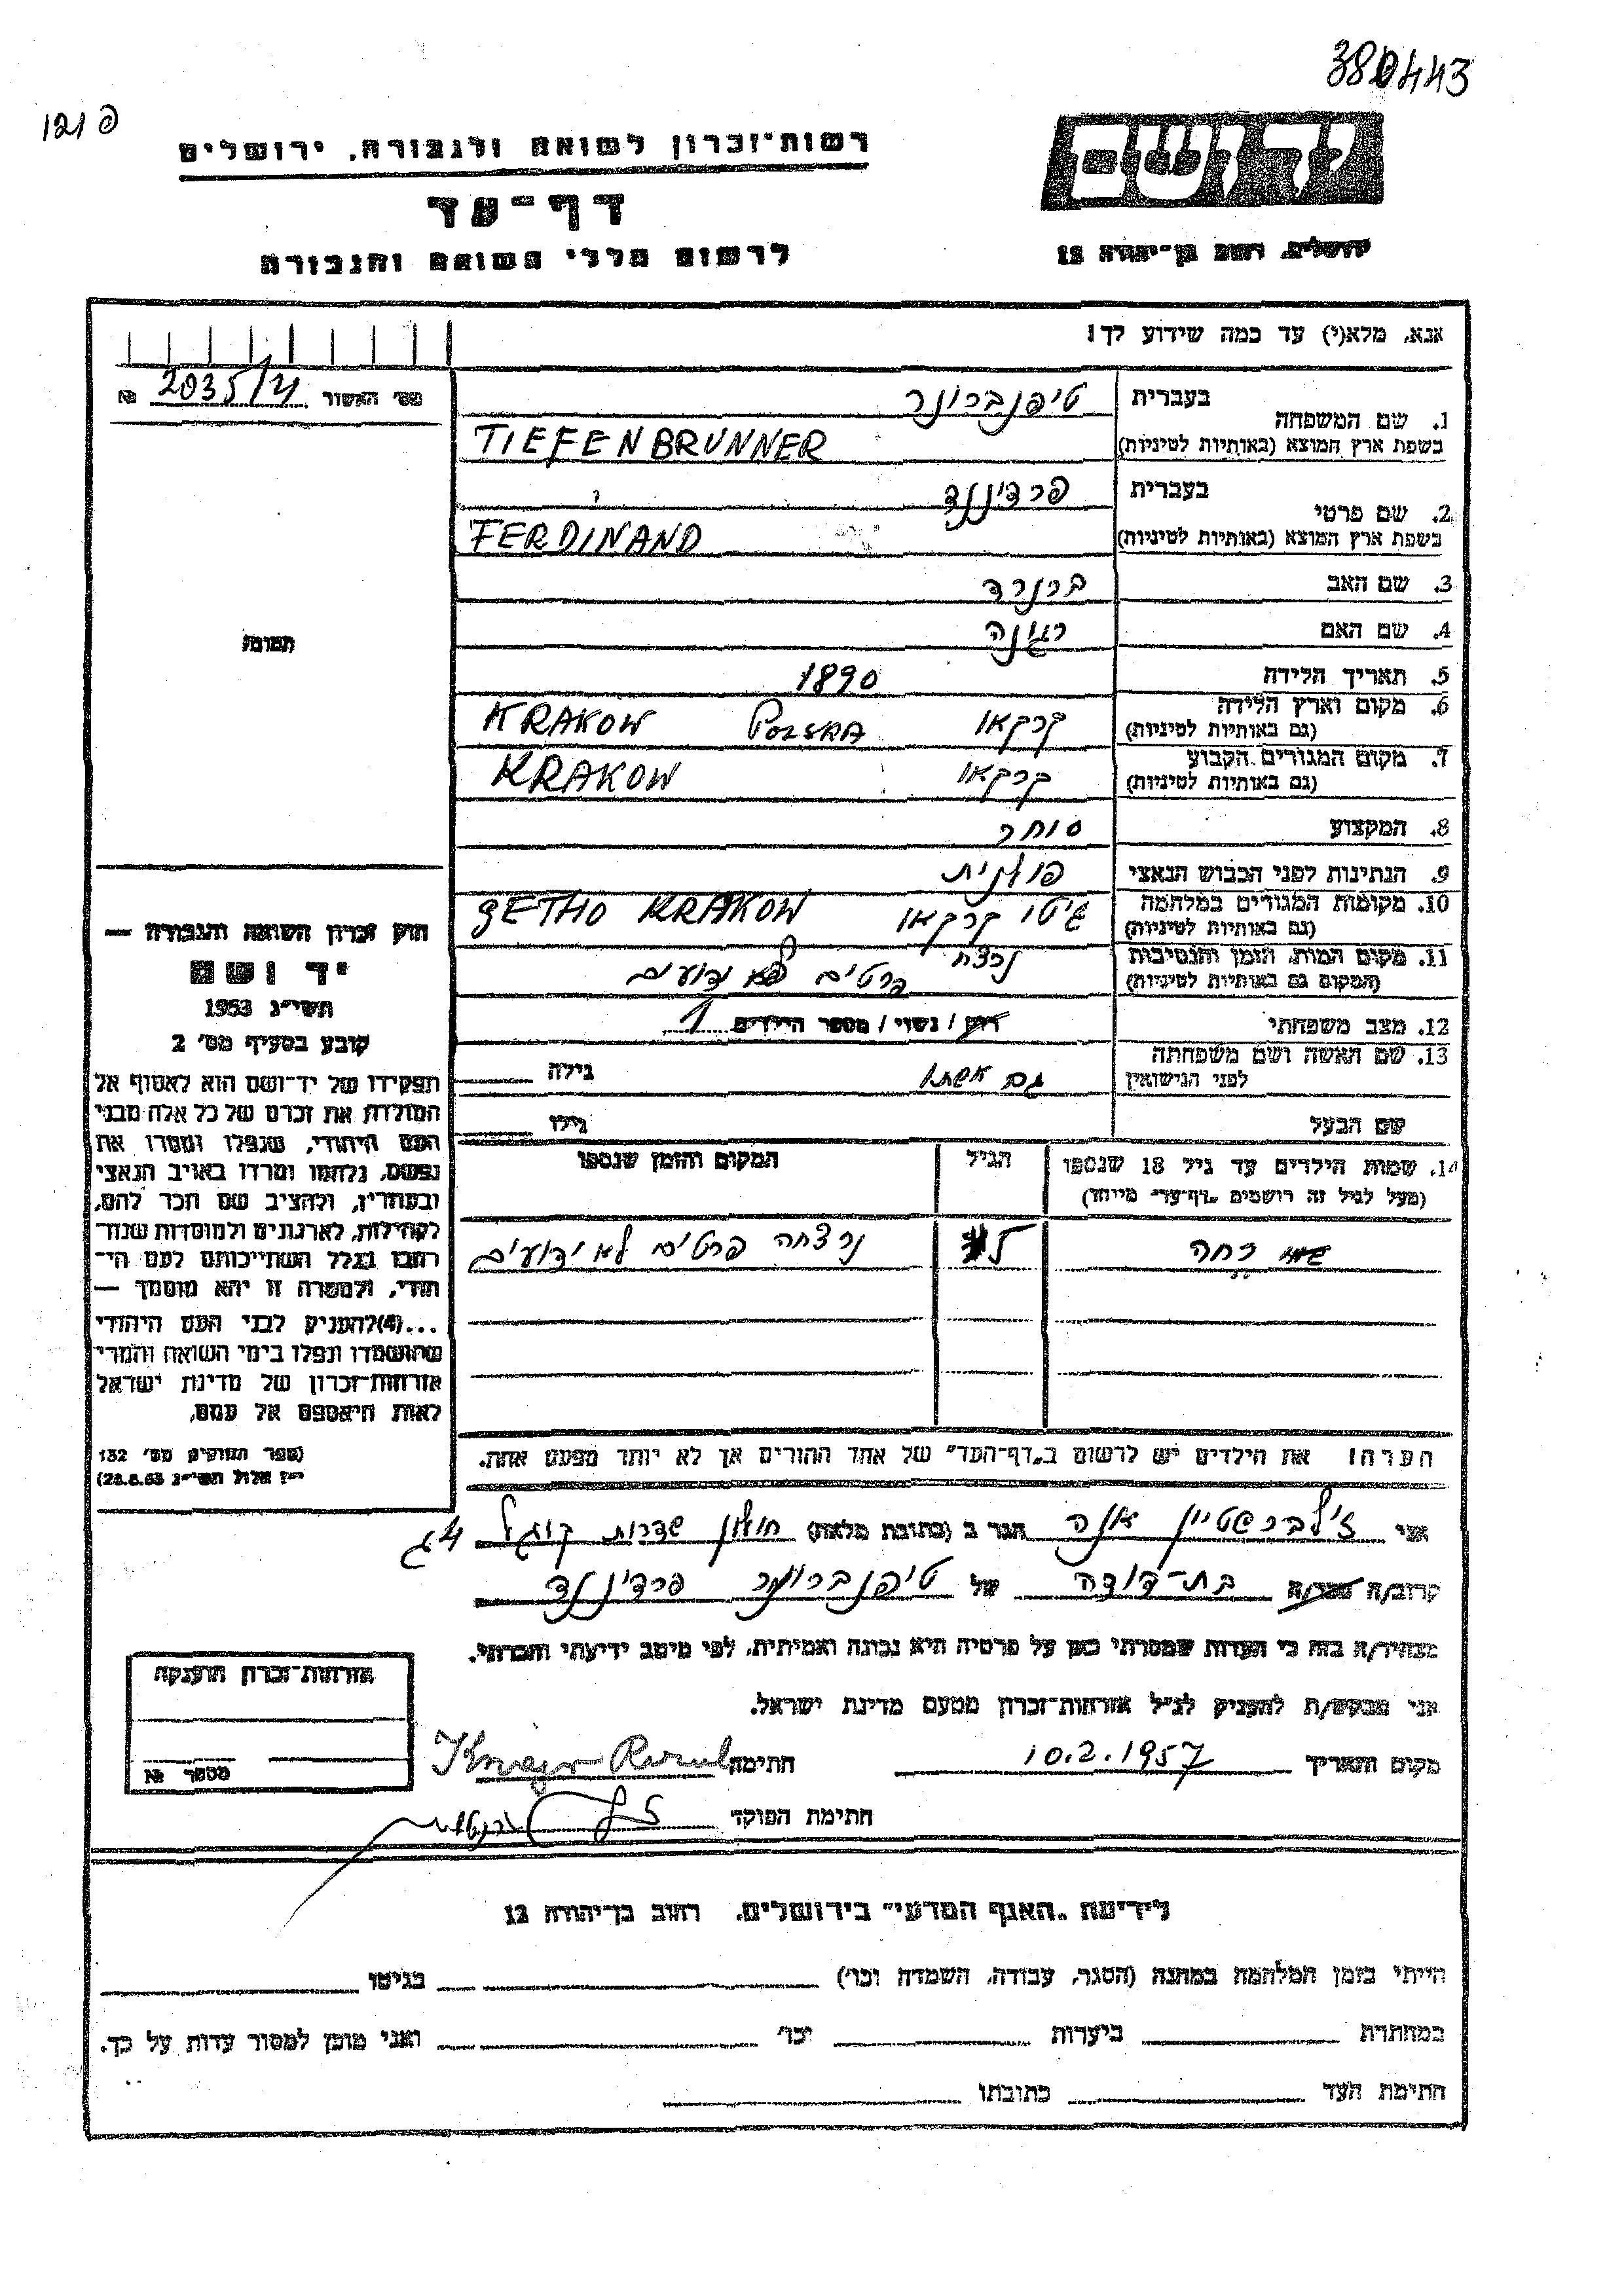 380443
121 פ
יד ושם
ירושלים, רחוב בן־יהודה 12
רשות־זכרון לשואה ולגבורה, ירושלים
דף־עד
לרשום חללי השואה והגבורה
אנא, מלא(י) עד כמה שידוע לך!
מס' האשור 2035/21 №
1. שם המשפחה בעברית טיפנברונר
בשפת ארץ המוצא (באותיות לטיניות) TIEFENBRUNNER
2. שם פרטי בעברית פרדיננד
בשפת ארץ המוצא (באותיות לטיניות) FERDINAND
3. שם האב ברנרד
4. שם האם רגינה
5. תאריך הלידה 1890
6. מקום וארץ הלידה (גם באותיות לטיניות) קרקאו POLSKA KRAKOW
7. מקום המגורים הקבוע (גם באותיות לטיניות) קרקאו KRAKOW
8. המקצוע סוחר
9. הנתינות לפני הכבוש הנאצי פולנית
10. מקומות המגורים במלחמה (גם באותיות לטיניות) גיטו קרקאו GETHO KRAKOW
11. מקום המות, הזמן והנסיבות (המקום גם באותיות לטיניות) נרצח פרטים לא ידועים
12. מצב משפחתי רווק / נשוי / מספר הילדים 1
13. שם האשה ושם משפחתה לפני הנישואין גם אשתו גילה
שם הבעל גילו
14. שמות הילדים עד גיל 18 שנספו (מעל לגיל זה רושמים "דף־עד" מיוחד)
הגיל
המקום והזמן שנספו
נרצחה פרטים לא ידועים
הערה! את הילדים יש לרשום ב"דף־העד" של אחד ההורים אך לא יותר מפעם אחת.
תמונה
חוק זכרון השואה והגבורה —
יד ושם
תשי"ג 1953
קובע בסעיף מס' 2
תפקידו של יד־ושם הוא לאסוף אל
המולדת את זכרם של כל אלה מבני
העם היהודי, שנפלו ומסרו את
נפשם, נלחמו ומרדו באויב הנאצי
ובעוזריו, ולהציב שם וזכר להם,
לקהילות, לארגונים ולמוסדות שנח־
רבו בגלל השתייכותם לעם הי־
הודי, ולמטרה זו יהא מוסמך —
...(4) להעניק לבני העם היהודי
שהושמדו ונפלו בימי השואה והמרי
אזרחות־זכרון של מדינת ישראל
לאות היאספם אל עמם.
(ספר החוקים מס' 132
י"ז אלול תשי"ג 28.8.53)
אני זילברשטיין אנה הגר ב (כתובת מלאה) חולון שדרות קוגל 4ג
קרוב/ה מכר/ה בת־דודה של טיפנברונר פרדיננד
מצהיר/ה בזה כי העדות שמסרתי כאן על פרטיה היא נכונה ואמיתית, לפי מיטב ידיעתי והכרתי.
אני מבקש/ת להעניק לנ"ל אזרחות־זכרון מטעם מדינת ישראל.
מקום ותאריך 10.2.1957 חתימה
חתימת הפוקד
אזרחות־זכרון הוענקה
מספר №
לידיעת "האגף המדעי" בירושלים, רחוב בן־יהודה 12
הייתי בזמן המלחמה במחנה (הסגר, עבודה, השמדה וכו') בגיטו
במחתרת ביערות וכו' ואני מוכן למסור עדות על כך.
חתימת העד כתובתו